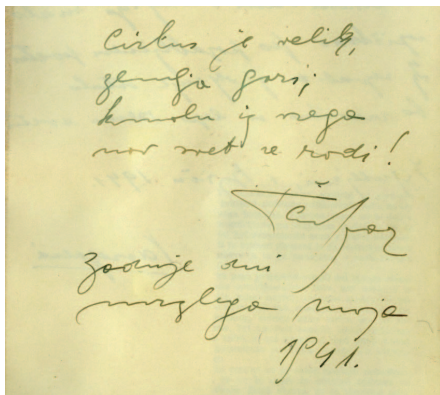 Cirkus je velik,
zemlja gori;
kmalu iz vsega
nov svet se rodi!
TČufar
zadnje dni
mrzlega maja
1941.